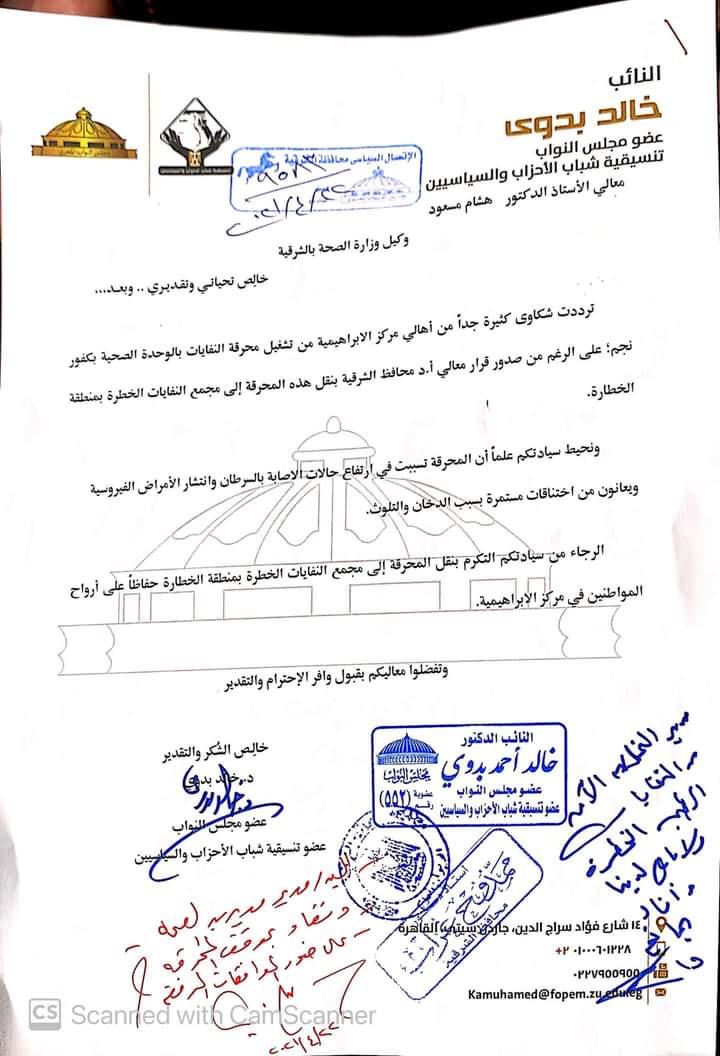 النائب
خالد بدوى
عضو مجلس النواب
تنسيقية شباب الأحزاب والسياسيين
الإتصال السياسى محافظة الشرقية
معالي الأستاذ الدكتور هشام مسعود
وكيل وزارة الصحة بالشرقية
خالِص تحياتي وتقديري .. وبعد،،،
ترددت شكاوى كثيرة جداً من أهالي مركز الابراهيمية من تشغيل محرقة النفايات بالوحدة الصحية بكفور
نجم؛ على الرغم من صدور قرار معالي أ.د محافظ الشرقية بنقل هذه المحرقة إلى مجمع النفايات الخطرة بمنطقة
الخطارة.
ونحيط سيادتكم علماً أن المحرقة تسببت في ارتفاع حالات الاصابة بالسرطان وانتشار الأمراض الفيروسية
ويعانون من اختناقات مستمرة بسبب الدخان والتلوث.
الرجاء من سيادتكم التكرم بنقل المحرقة إلى مجمع النفايات الخطرة بمنطقة الخطارة حفاظاً على أرواح
المواطنين في مركز الابراهيمية.
وتفضلوا معاليكم بقبول وافر الإحترام والتقدير
خالِص الشُكر والتقدير
د. خالد بدوي
عضو مجلس النواب
عضو تنسيقية شباب الأحزاب والسياسيين
النائب الدكتور
خالد أحمد بدوي
عضو مجلس النواب
عضو تنسيقية شباب الأحزاب والسياسيين
مجلس النواب
عضوية رقم (٥٥٢)
ممدوح غراب
محافظ الشرقية
السيد / مدير مديرية الصحة
١٤ شارع فؤاد سراج الدين، جاردن سيتي، القاهرة
+٢ ٠١٠٠٠٦٠١٢٢٨
٠٢٢٧٩٥٥٩٠٠
Kamuhamed@fopem.zu.edu.eg
CS Scanned with CamScanner